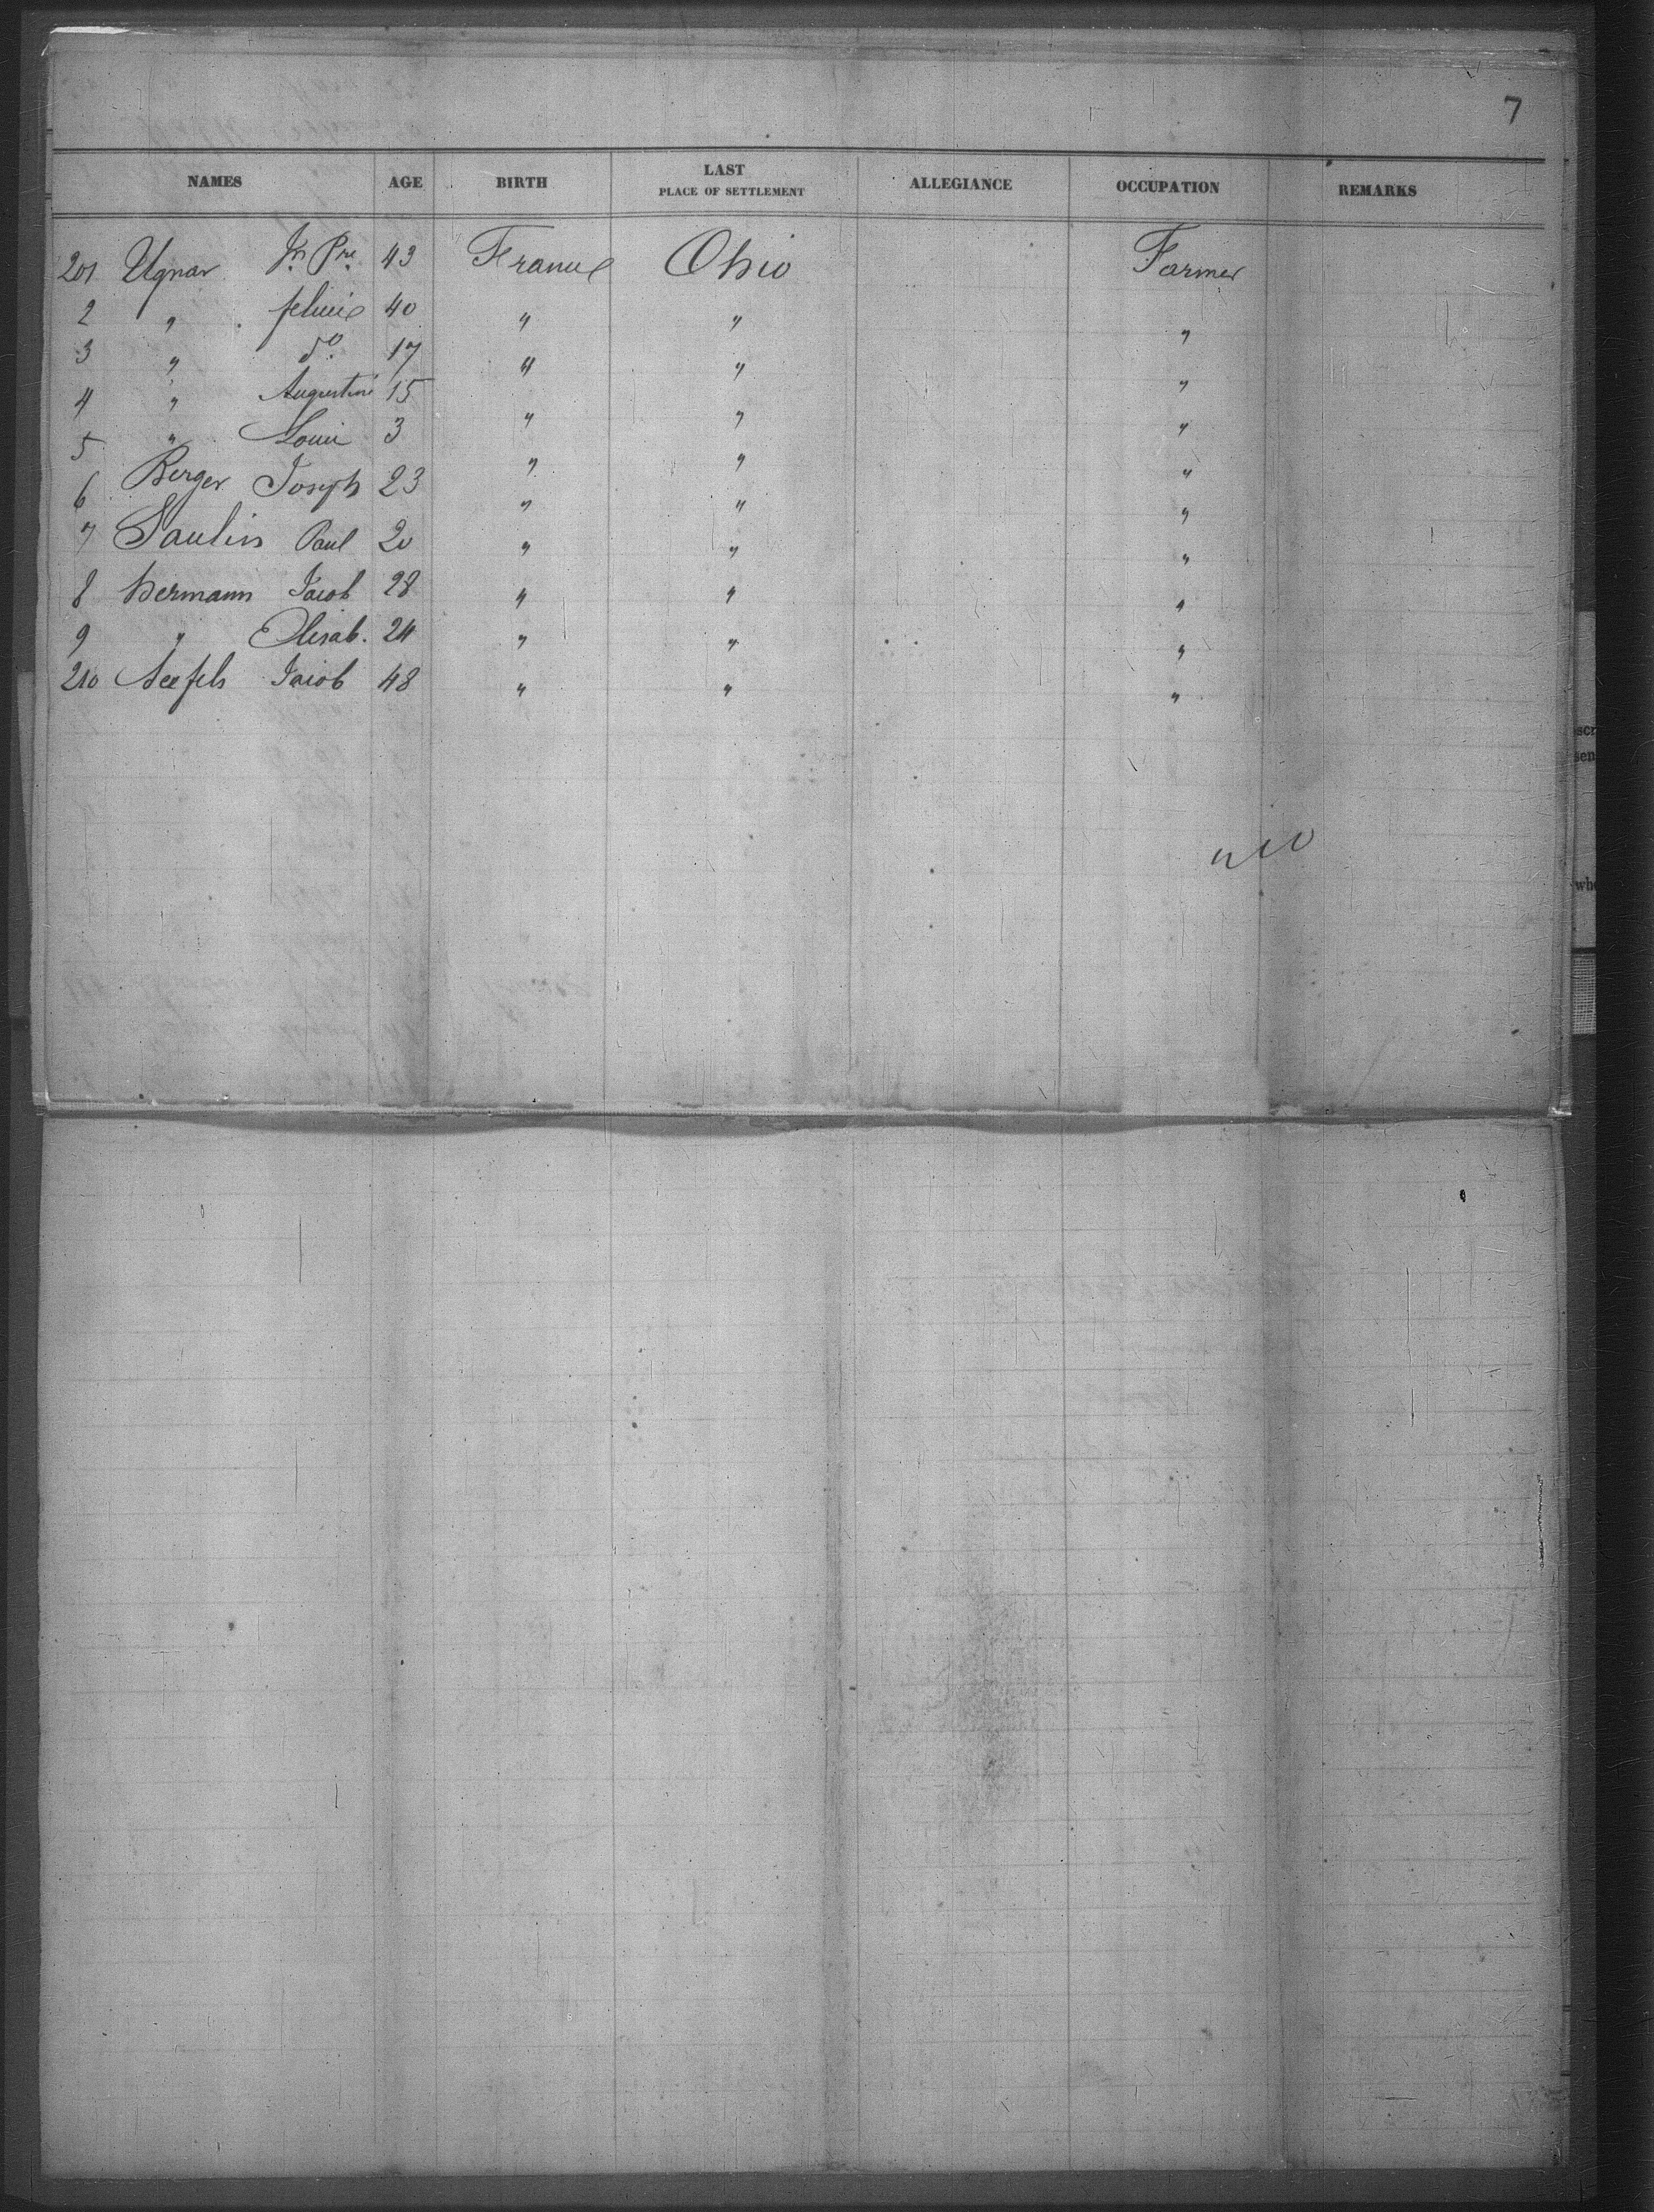 7
NAMES AGE BIRTH LAST PLACE OF SETTLEMENT ALLEGIANCE OCCUPATION REMARKS
201 Ugnar Jn Pre 43 France Ohio Farmer
2 " 40 " " "
3 " do 17 " " "
4 " Augustine 15 " " "
5 " Louis 3 " " "
6 Berger Joseph 23 " " "
7 Paul 20 " " "
8 hermann Jacob 28 " " "
9 " Elisab. 24 " " "
210 Jacob 48 " " "